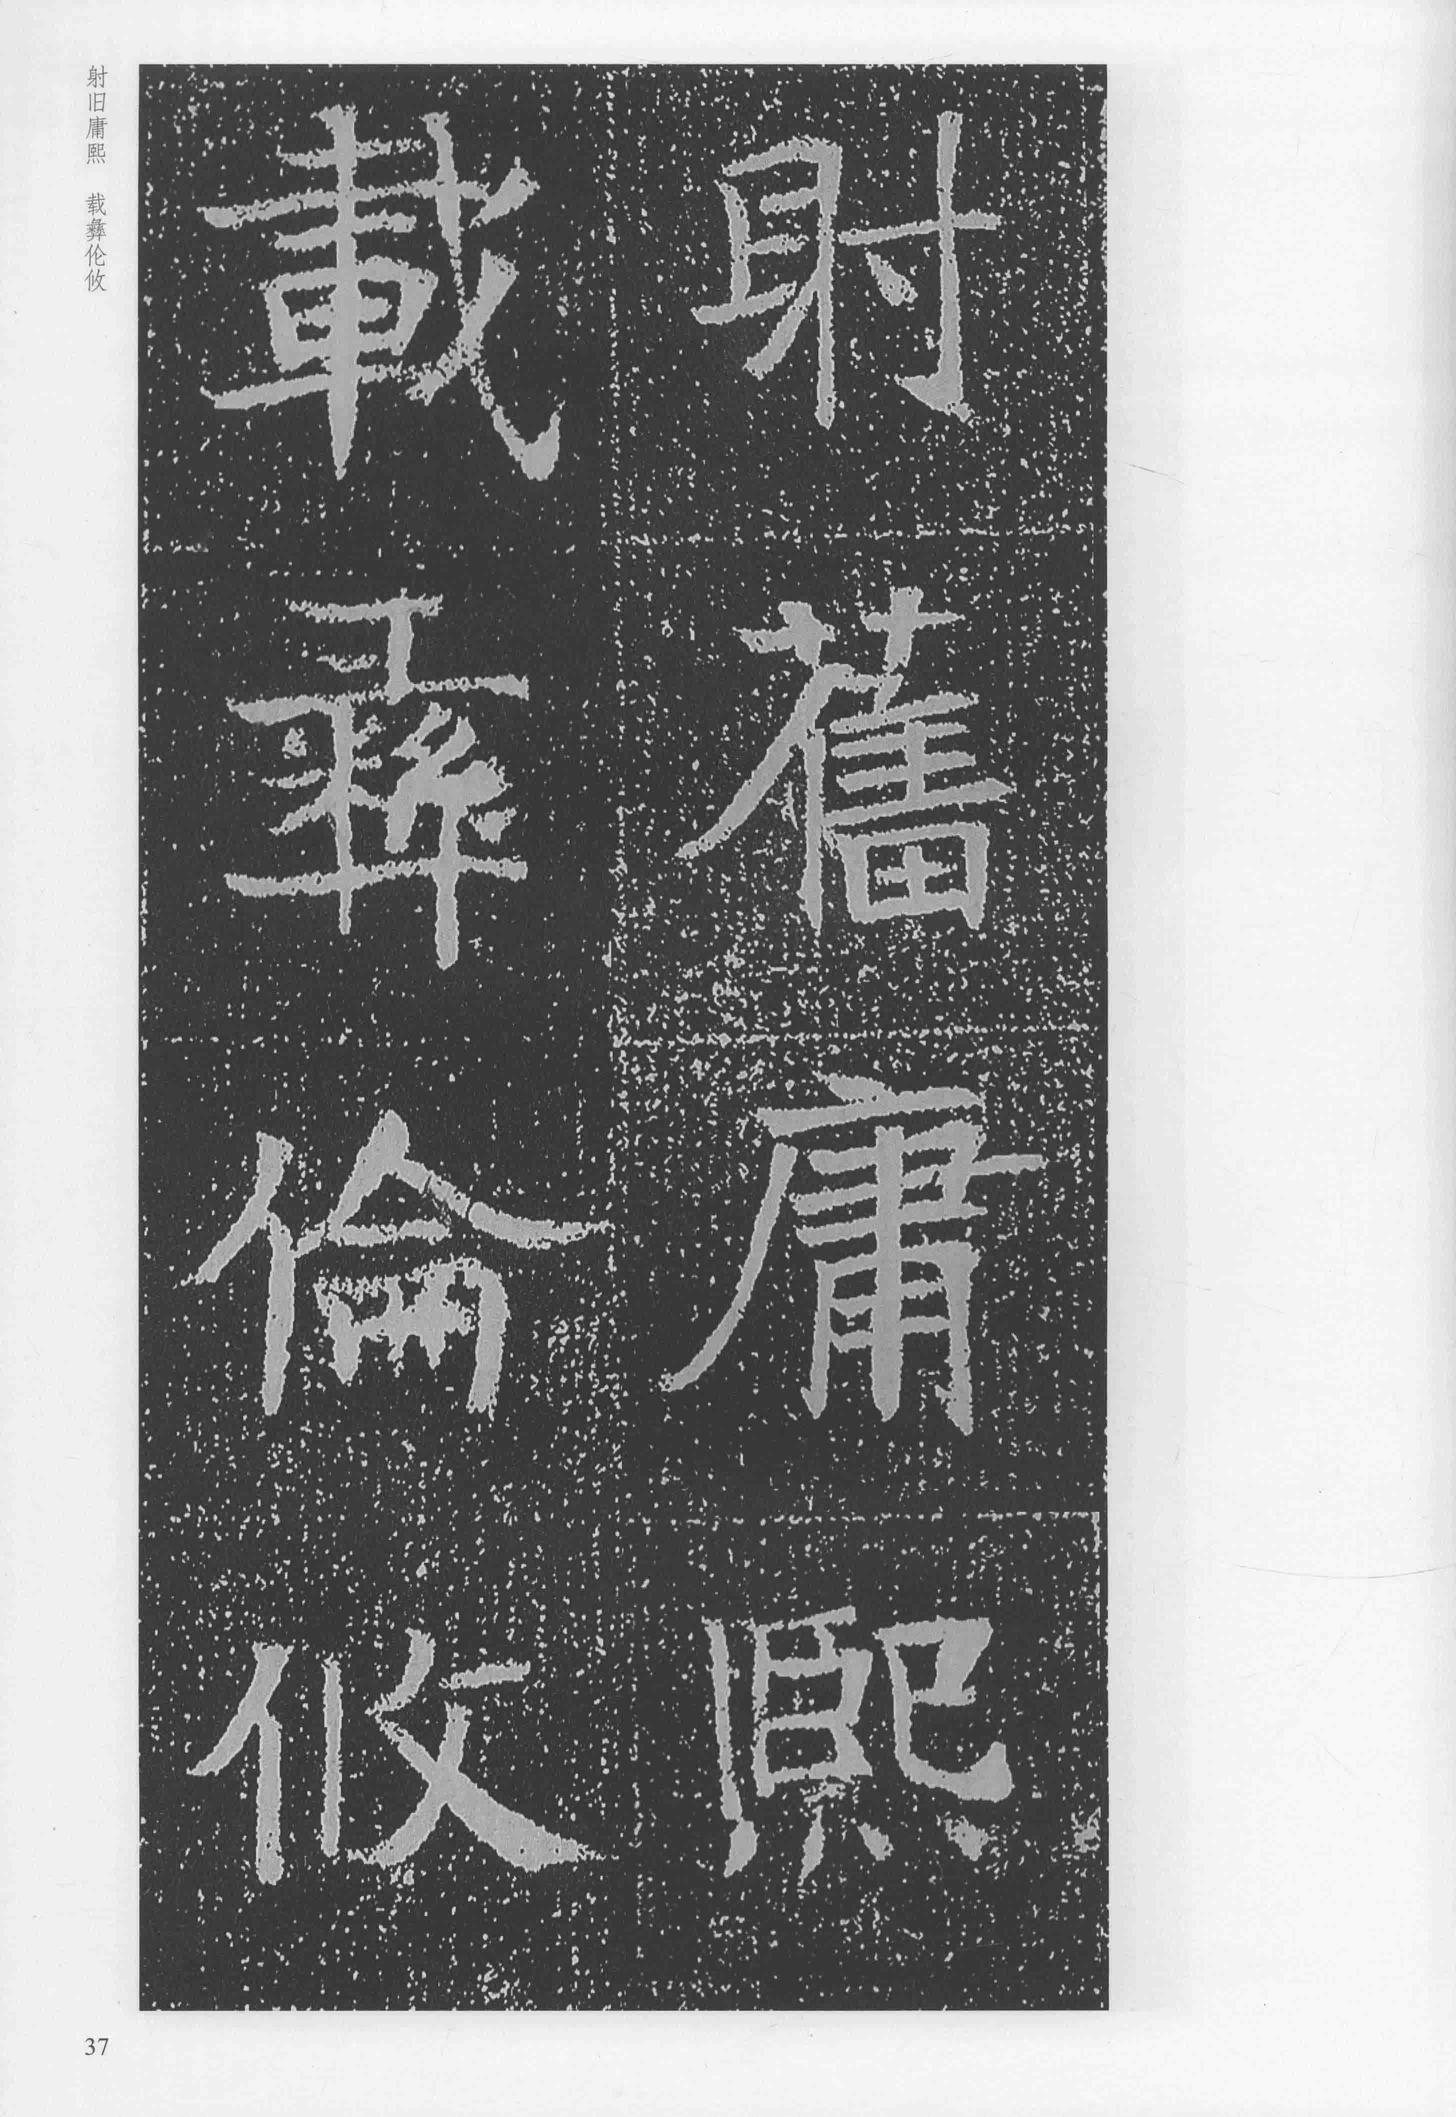 射舊庸熙
載彝倫攸
射旧庸熙 载彝伦攸
37